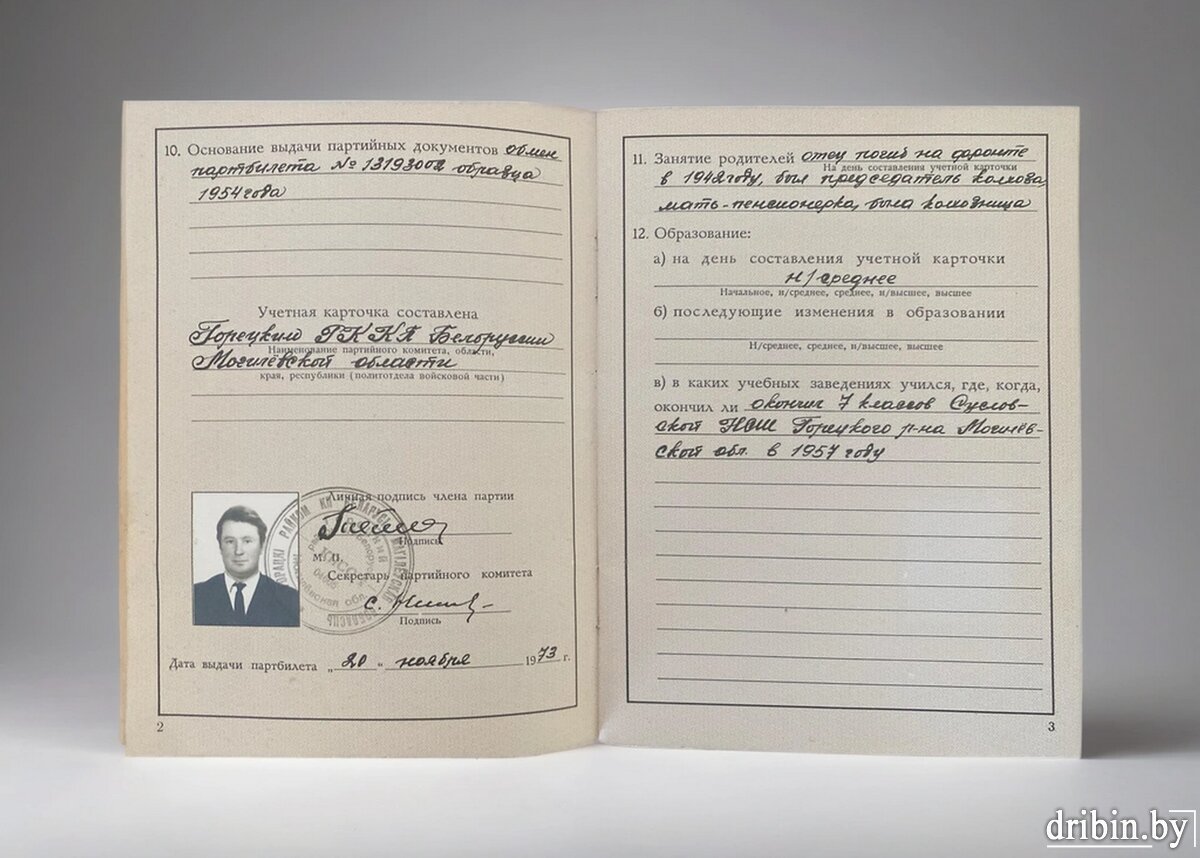 10. Основание выдачи партийных документов обмен
партбилета № 13193002 образца
1954 года
Учетная карточка составлена
Горецким РК КП Белоруссии
Наименование партийного комитета, области,
Могилёвской области
края, республики (политотдела войсковой части)
Личная подпись члена партии
Подпись
М. П.
Секретарь партийного комитета
Подпись
Дата выдачи партбилета „ 20 “ ноября 1973 г.
2
11. Занятие родителей отец погиб на фронте
На день составления учетной карточки
в 1942 году, был председатель колхоза,
мать-пенсионерка, была колхозница
12. Образование:
а) на день составления учетной карточки
н/среднее
Начальное, н/среднее, среднее, н/высшее, высшее
б) последующие изменения в образовании
Н/среднее, среднее, н/высшее, высшее
в) в каких учебных заведениях учился, где, когда,
окончил ли окончил 7 классов Суслов-
ской НСШ Горецкого р-на Могилёв-
ской обл. в 1957 году
3
dribin.by